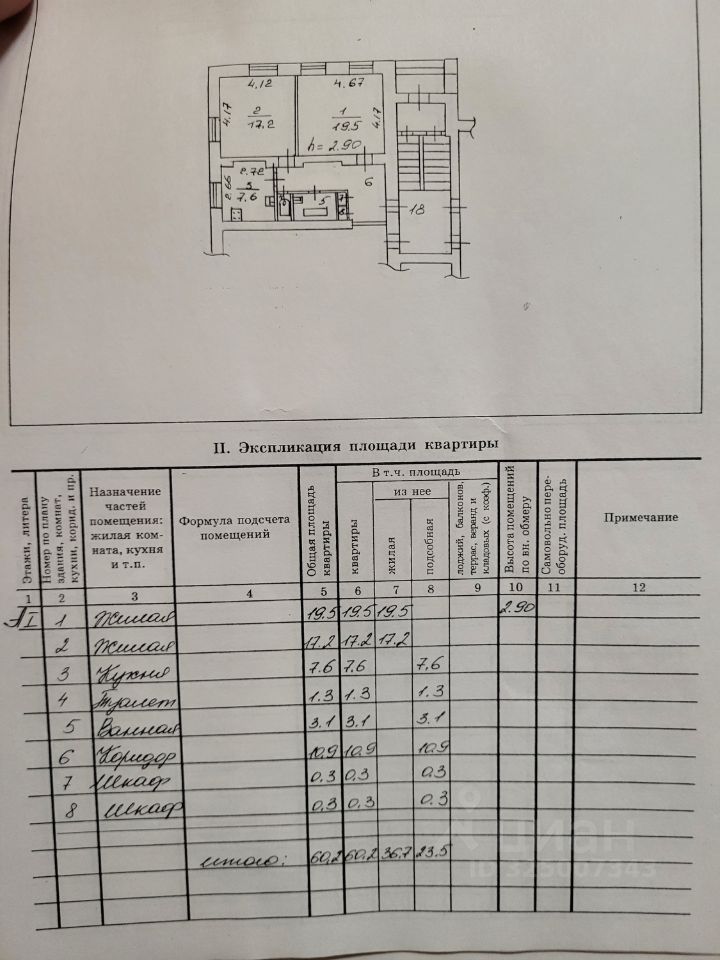 4.12
4.67
4.17
2
17,2
1
19.5
4.17
h=2.90
2.72
2.66
3
7.6
6
5
18
II. Экспликация площади квартиры
Этажи, литера
Номер по плану здания, комнат, кухни, корид. и пр.
Назначение частей помещения: жилая комната, кухня и т.п.
Формула подсчета помещений
Общая площадь квартиры
В т.ч. площадь
квартиры
из нее
жилая
подсобная
лоджий, балконов, террас, веранд и кладовых (с коэф.)
Высота помещений по вн. обмеру
Самовольно переоборуд. площадь
Примечание
1 2 3 4 5 6 7 8 9 10 11 12
I 1 Жилая 19.5 19.5 19.5 2.90
2 Жилая 17.2 17.2 17.2
3 Кухня 7.6 7.6 7.6
4 Туалет 1.3 1.3 1.3
5 Ванная 3.1 3.1 3.1
6 Коридор 10.9 10.9 10.9
7 Шкаф 0.3 0.3 0.3
8 Шкаф 0.3 0.3 0.3
итого: 60,2 60.2 36.7 23.5
циан